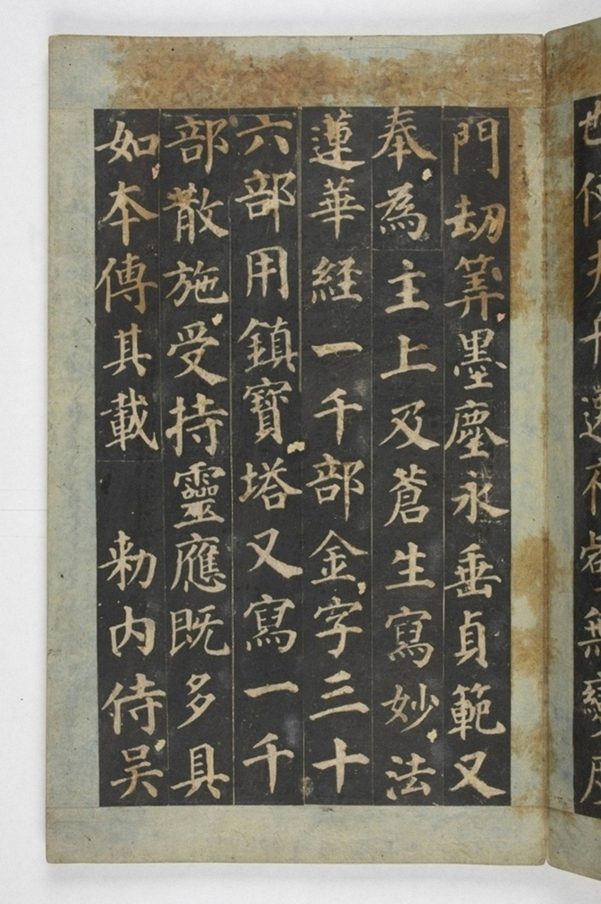 也使夫舟遷夜壑無變度
門刧筭墨塵永垂貞範又
奉為主上及蒼生寫妙法
蓮華経一千部金字三十
六部用鎮寶塔又寫一千
部散施受持靈應既多具
如本傳其載 勅内侍吳